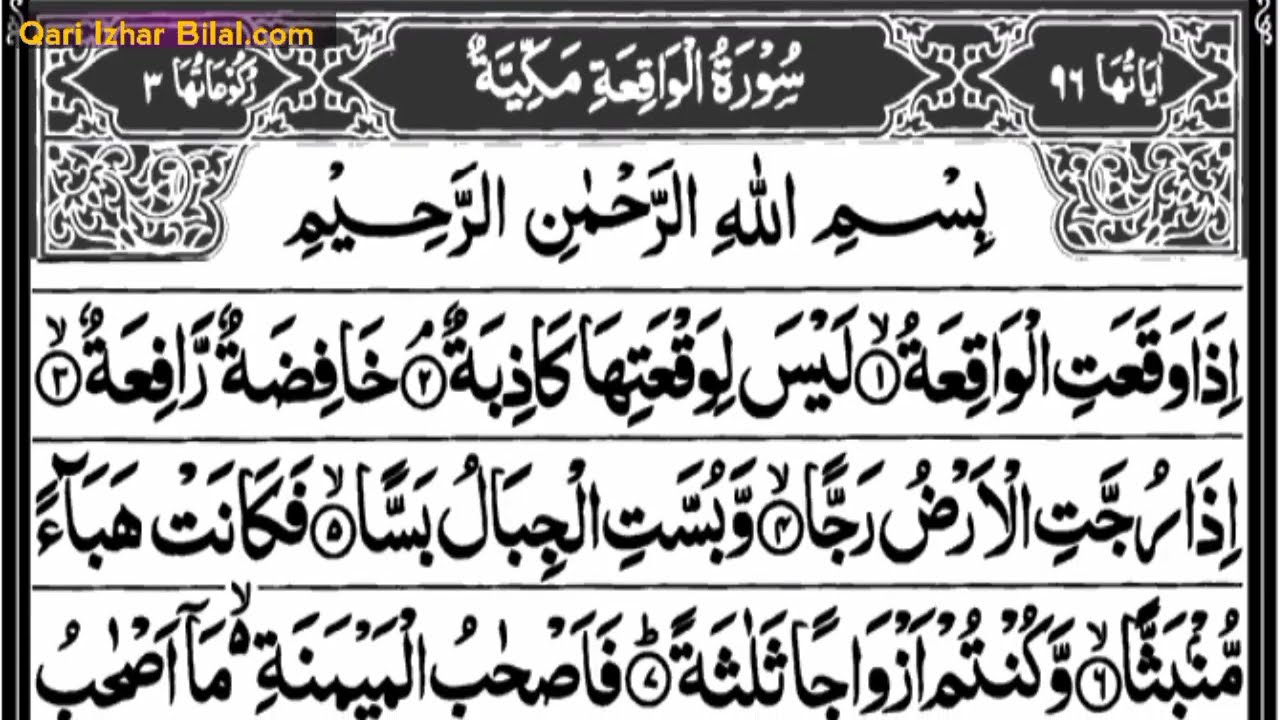 Qari Izhar Bilal.com
اٰيَاتُهَا ٩٦ سُوْرَةُ الْوَاقِعَةِ مَكِّيَّةٌ رُكُوْعَاتُهَا ٣
بِسْمِ اللهِ الرَّحْمٰنِ الرَّحِيْمِ
اِذَا وَقَعَتِ الْوَاقِعَةُ ۙ﴿١﴾ لَيْسَ لِوَقْعَتِهَا كَاذِبَةٌ ۘ﴿٢﴾ خَافِضَةٌ رَّافِعَةٌ ۙ﴿٣﴾
اِذَا رُجَّتِ الْاَرْضُ رَجًّا ۙ﴿٤﴾ وَّبُسَّتِ الْجِبَالُ بَسًّا ۙ﴿٥﴾ فَكَانَتْ هَبَآءً
مُّنْۢبَثًّا ۙ﴿٦﴾ وَّكُنْتُمْ اَزْوَاجًا ثَلٰثَةً ؕ﴿٧﴾ فَاَصْحٰبُ الْمَيْمَنَةِ ۙ۵ مَاۤ اَصْحٰبُ